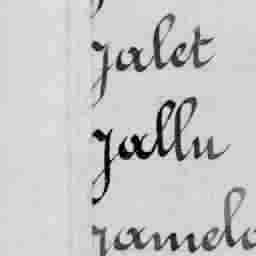 jalet
jallu
jamelo